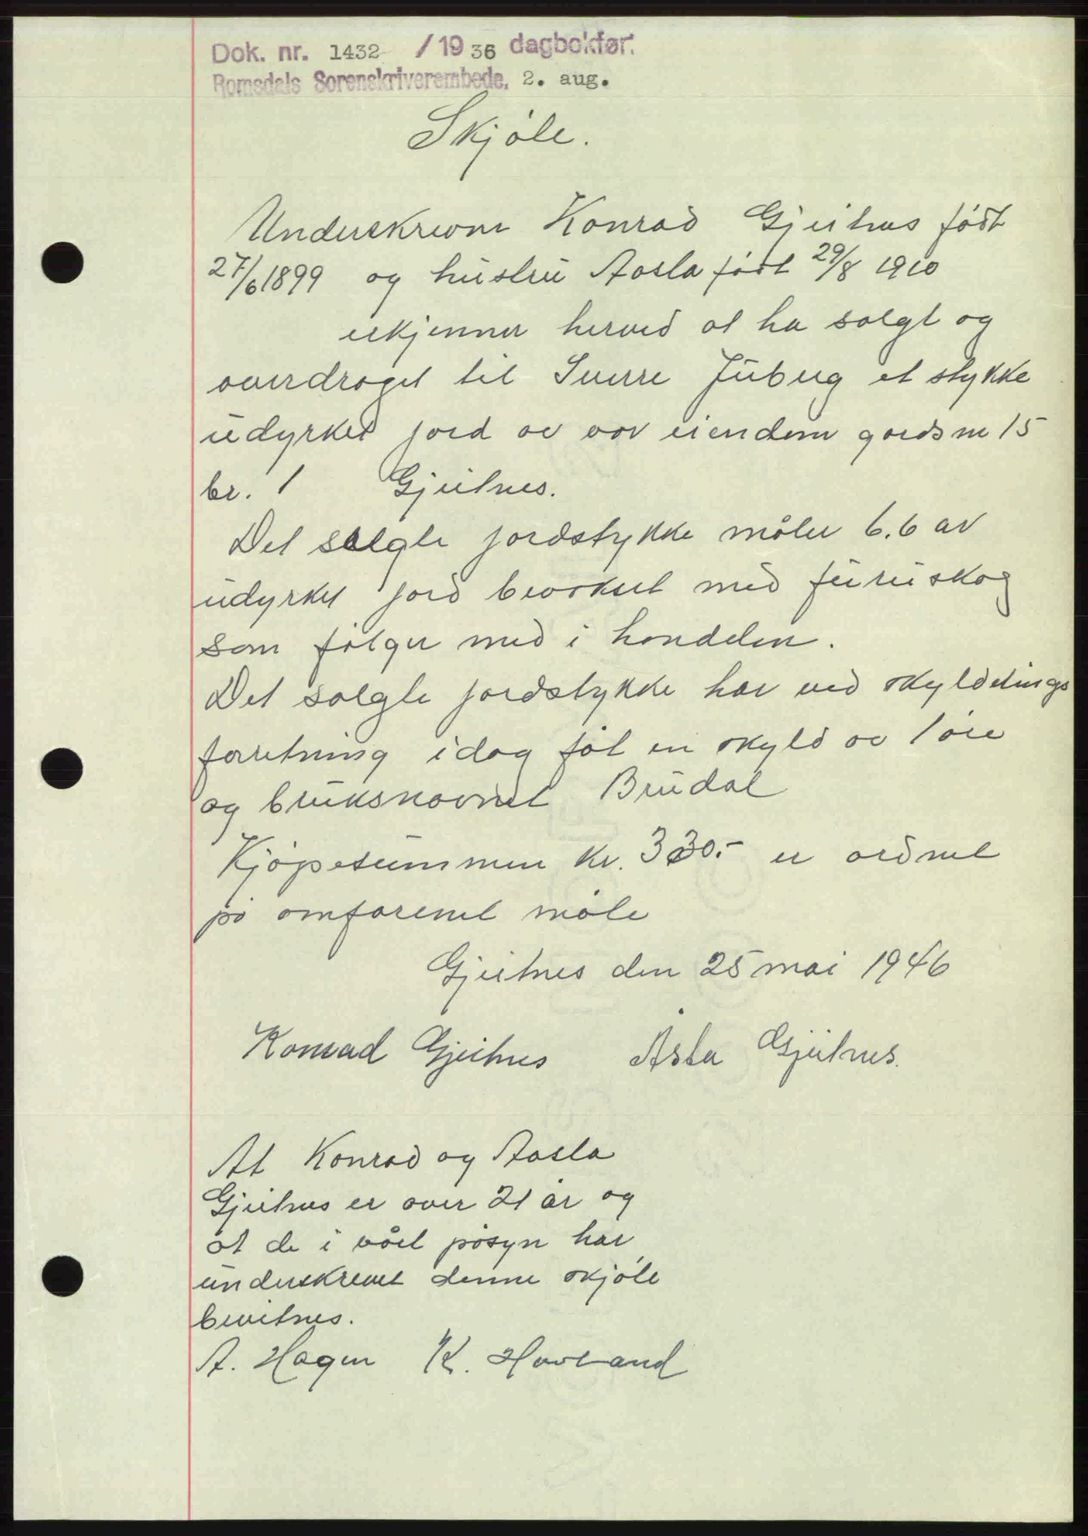 Dok. nr. 1432 / 19 36 dagbokført.
Romsdals Sorenskriverembede, 2. aug.
Skjøte.
Underskrevne Konrad Gjeitnes født
27/6 1899 og hustru Aasta født 29/8 1910
erkjenner herved at ha solgt og
overdraget til Sverre Jubug et stykke
udyrket jord av vor eiendom gardsnr 15
br. 1 Gjeitnes.
Det solgte jordstykke måler 6.6 ar
udyrket jord bevokset med furuskog
som følger med i handelen.
Det solgte jordstykke har ved skylddelings
forretning idag fåt en skyld av 1 øre
og bruksnavnet Brudal
Kjøpesummen Kr. 330.- er ordnet
på omforenet måte
Gjeitnes den 25 mai 1946
Konrad Gjeitnes Åsta Gjeitnes.
At Konrad og Aasta
Gjeitnes er over 21 år og
at de i vårt påsyn har
underskrevet denne skjøte
bevitnes.
A. Hagen K. Hovland